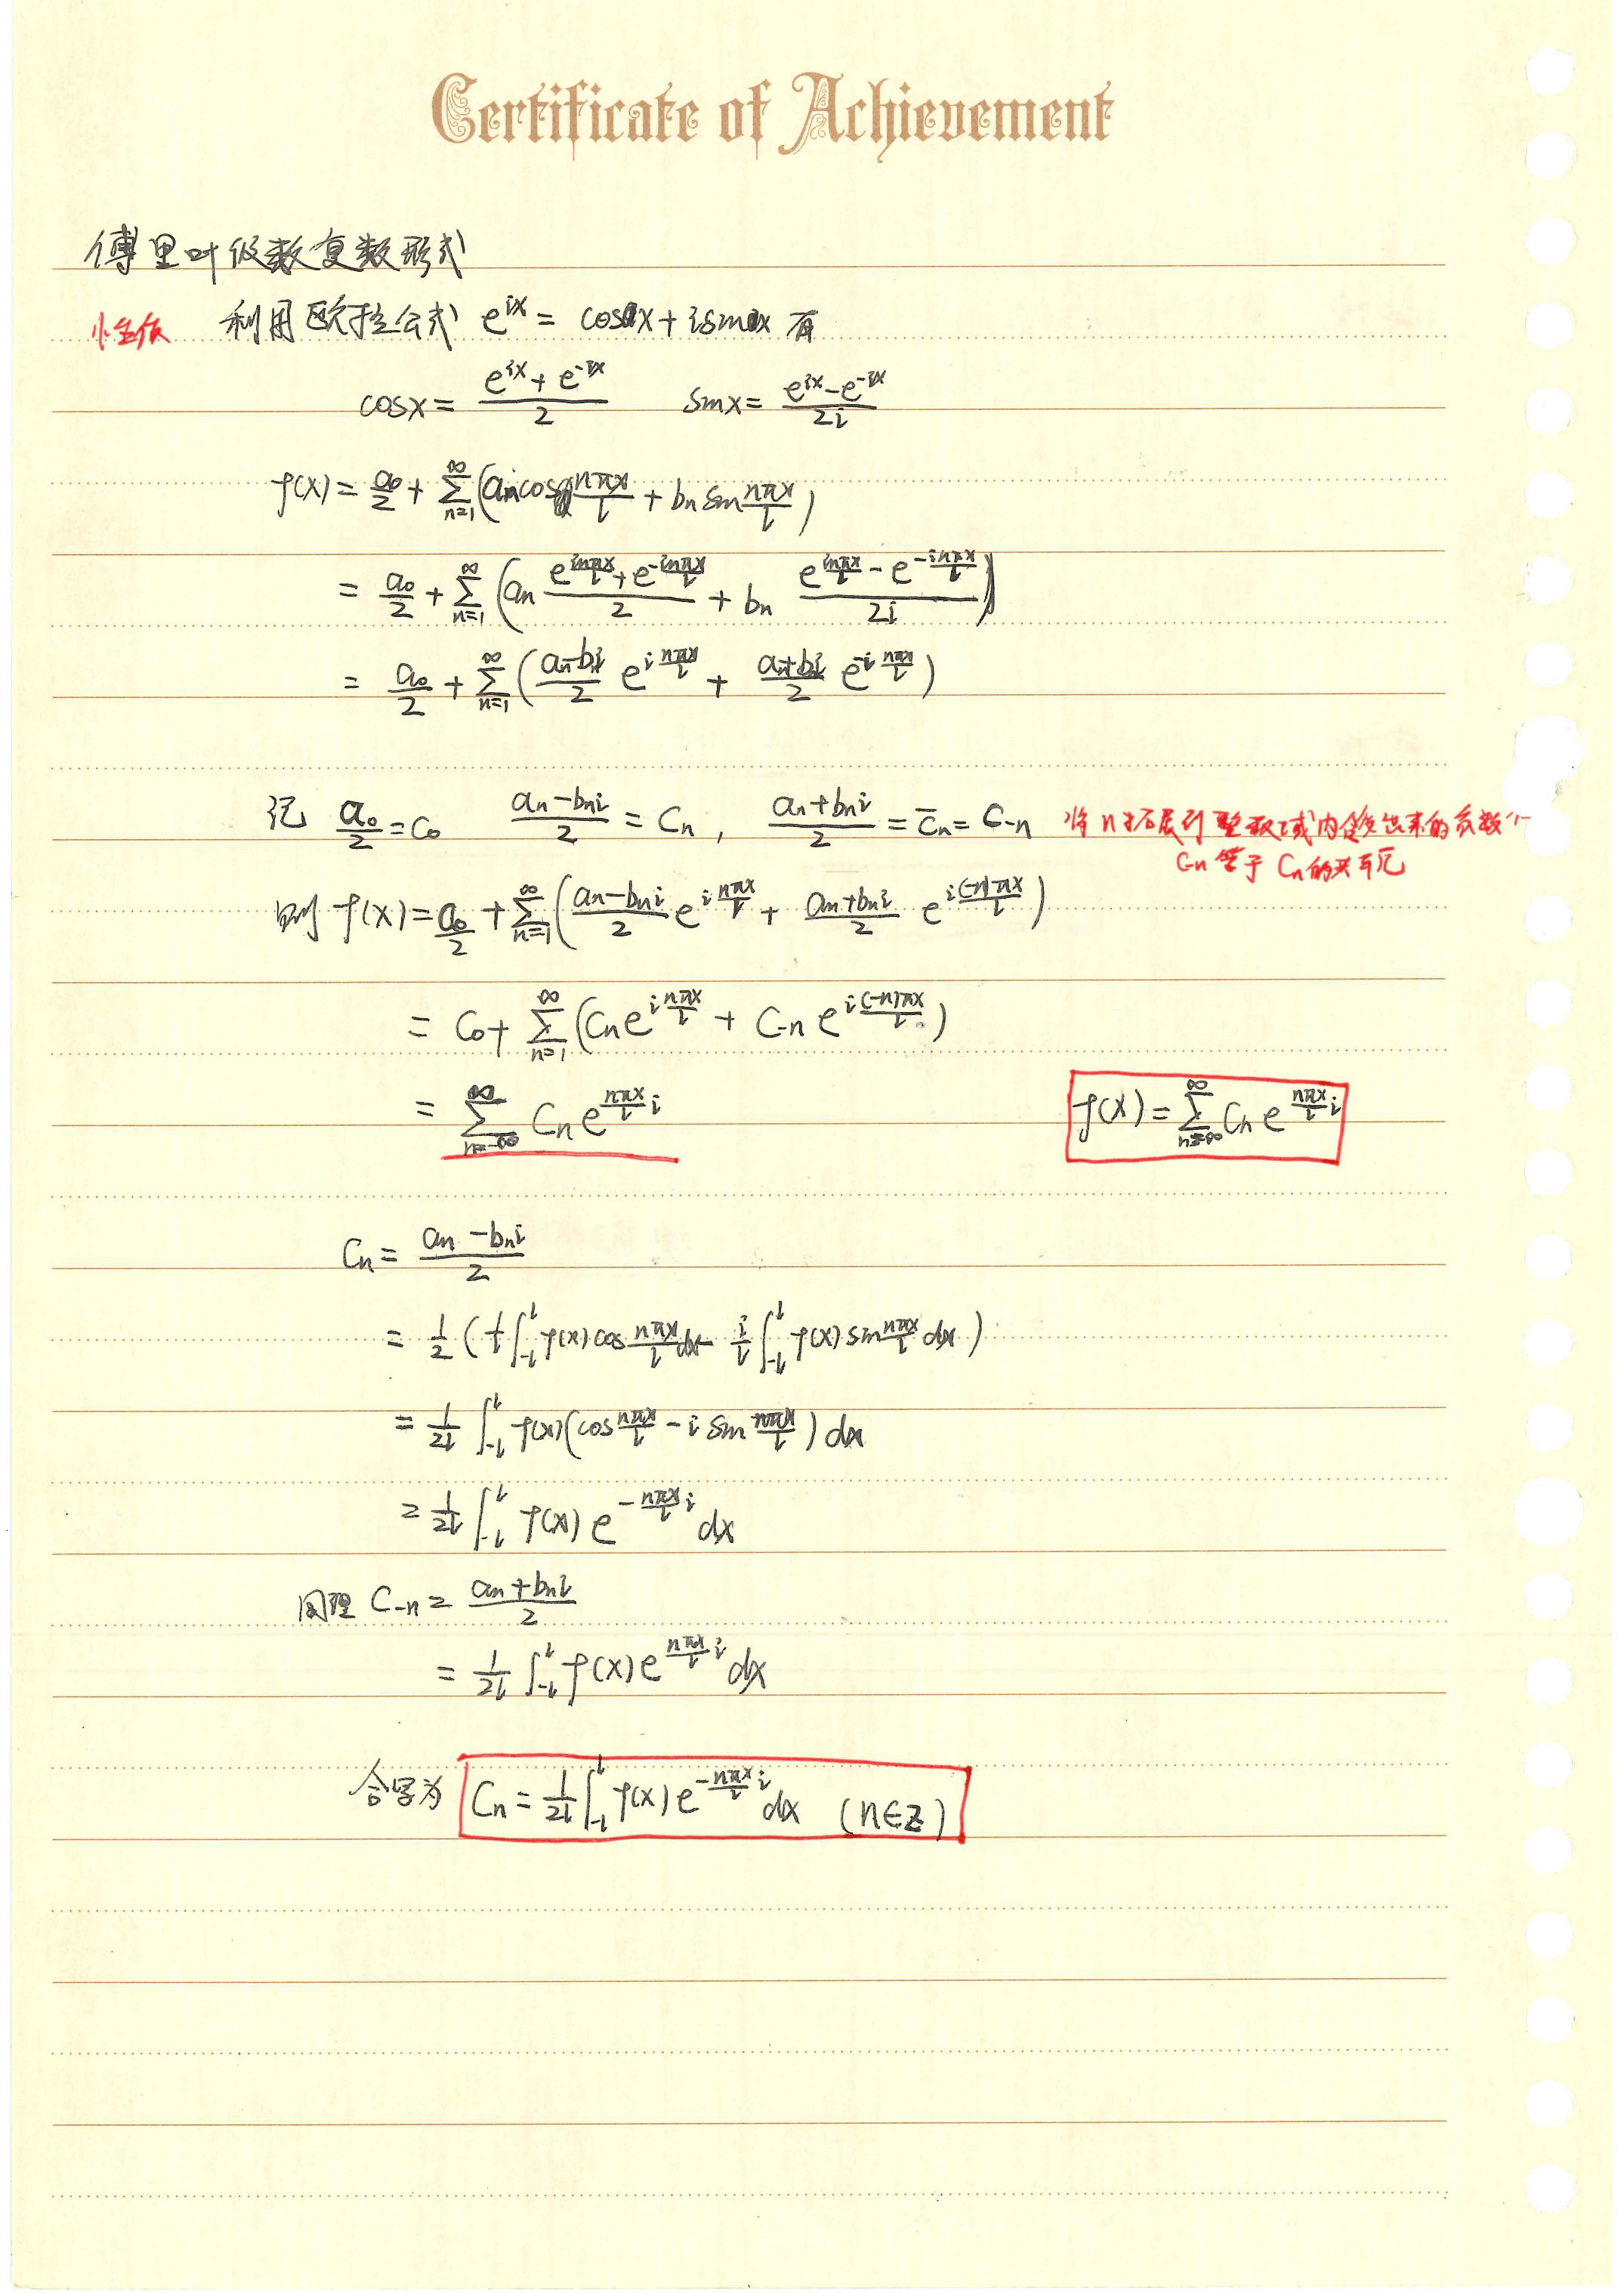 Certificate of Achievement
傅里叶级数复数形式
利用欧拉公式 e^{ix} = cosx + isinx 有
cosx = \frac{e^{ix}+e^{-ix}}{2} sinx = \frac{e^{ix}-e^{-ix}}{2i}
f(x) = \frac{a_0}{2} + \sum_{n=1}^{∞} (a_n cos\frac{nπx}{l} + b_n sin\frac{nπx}{l})
= \frac{a_0}{2} + \sum_{n=1}^{∞} (a_n \frac{e^{i\frac{nπx}{l}}+e^{-i\frac{nπx}{l}}}{2} + b_n \frac{e^{i\frac{nπx}{l}}-e^{-i\frac{nπx}{l}}}{2i})
= \frac{a_0}{2} + \sum_{n=1}^{∞} (\frac{a_n-b_ni}{2} e^{i\frac{nπx}{l}} + \frac{a_n+b_ni}{2} e^{-i\frac{nπx}{l}})
记 \frac{a_0}{2} = C_0 \frac{a_n-b_ni}{2} = C_n , \frac{a_n+b_ni}{2} = \overline{C}_n = C_{-n} 将n拓展到整数域内多出来的系数
C_{-n} 等于 C_n 的共轭
则 f(x) = \frac{a_0}{2} + \sum_{n=1}^{∞} (\frac{a_n-b_ni}{2} e^{i\frac{nπx}{l}} + \frac{a_n+b_ni}{2} e^{i\frac{(-n)πx}{l}})
= C_0 + \sum_{n=1}^{∞} (C_n e^{i\frac{nπx}{l}} + C_{-n} e^{i\frac{(-n)πx}{l}})
= \sum_{n=-∞}^{∞} C_n e^{\frac{nπx}{l}i} f(x) = \sum_{n=-∞}^{∞} C_n e^{\frac{nπx}{l}i}
C_n = \frac{a_n-b_ni}{2}
= \frac{1}{2} (\frac{1}{l} \int_{-l}^{l} f(x) cos\frac{nπx}{l} dx - \frac{i}{l} \int_{-l}^{l} f(x) sin\frac{nπx}{l} dx)
= \frac{1}{2l} \int_{-l}^{l} f(x) (cos\frac{nπx}{l} - i sin\frac{nπx}{l}) dx
= \frac{1}{2l} \int_{-l}^{l} f(x) e^{-\frac{nπx}{l}i} dx
同理 C_{-n} = \frac{a_n+b_ni}{2}
= \frac{1}{2l} \int_{-l}^{l} f(x) e^{\frac{nπx}{l}i} dx
合写为 C_n = \frac{1}{2l} \int_{-l}^{l} f(x) e^{-\frac{nπx}{l}i} dx (n∈Z)